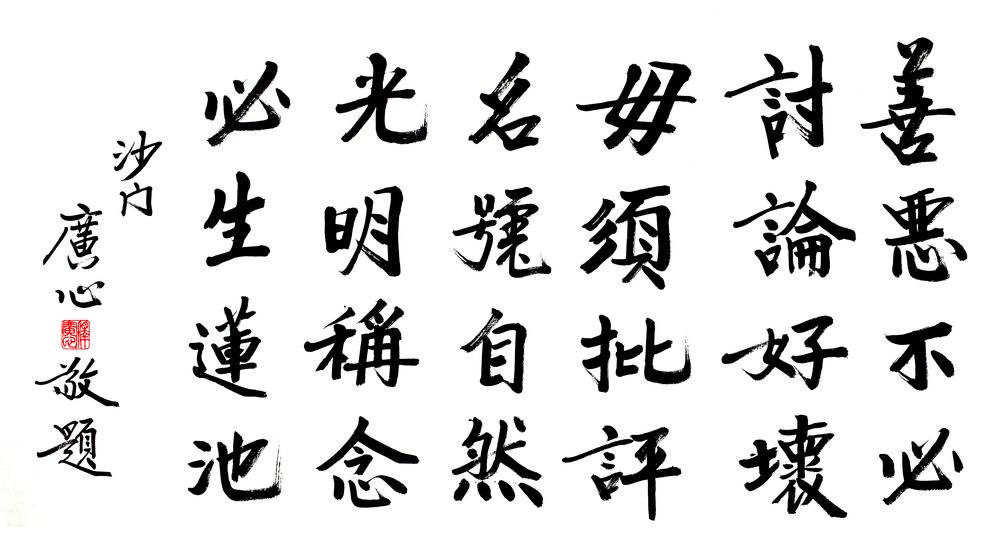 善惡不必
討論好壞
毋須批評
名號自然
光明稱念
必生蓮池
沙门
廣心
敬題